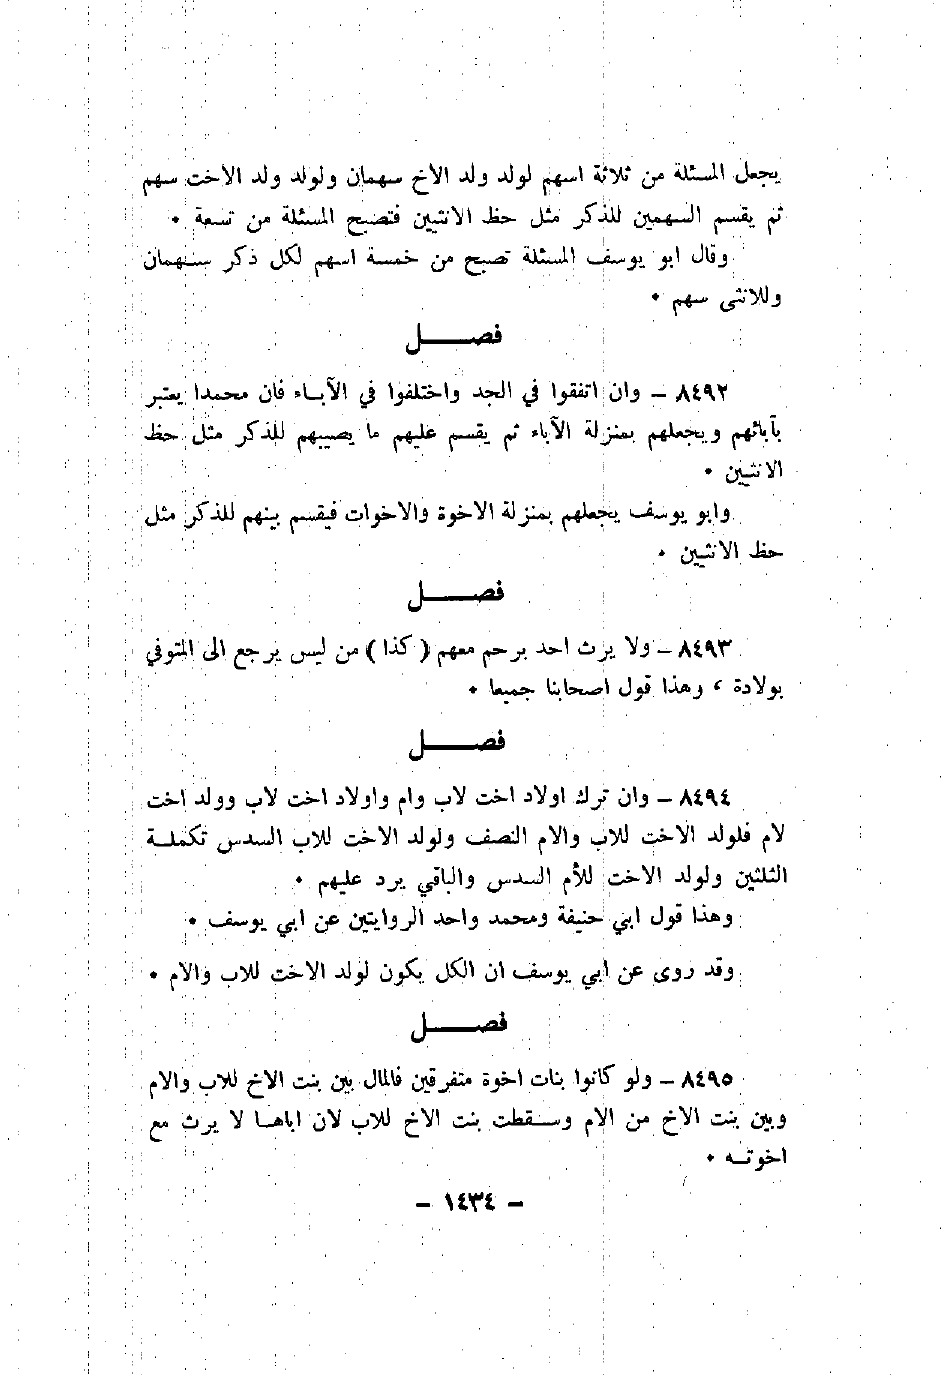 يجعل المسئلة من ثلاثة اسهم لولد ولد الاخ سهمان ولولد ولد الاخت سهم
ثم يقسم السهمين للذكر مثل حظ الانثيين فتصبح المسئلة من تسعة •
وقال ابو يوسف المسئلة تصبح من خمسة اسهم لكل ذكر سهمان
وللانثى سهم •
فصـــل
٨٤٩٢ – وان اتفقوا في الجد واختلفوا في الآباء فان محمدا يعتبر
بآبائهم ويجعلهم بمنزلة الآباء ثم يقسم عليهم ما يصيبهم للذكر مثل حظ
الانثيين •
وابو يوسف يجعلهم بمنزلة الاخوة والاخوات فيقسم بينهم للذكر مثل
حظ الانثيين •
فصـــل
٨٤٩٣ – ولا يرث احد برحم معهم ( كذا ) من ليس يرجع الى المتوفي
بولادة ، وهذا قول اصحابنا جميعا •
فصـــل
٨٤٩٤ – وان ترك اولاد اخت لاب وام واولاد اخت لاب وولد اخت
لام فلولد الاخت للاب والام النصف ولولد الاخت للاب السدس تكملـة
الثلثين ولولد الاخت للأم السدس والباقي يرد عليهم •
وهذا قول ابي حنيفة ومحمد واحد الروايتين عن ابي يوسف •
وقد روى عن ابي يوسف ان الكل يكون لولد الاخت للاب والام •
فصـــل
٨٤٩٥ – ولو كانوا بنات اخوة متفرقين فالمال بين بنت الاخ للاب والام
وبين بنت الاخ من الام وسـقطت بنت الاخ للاب لان اباهـا لا يرث مع
اخوتـه •
– ١٤٣٤ –